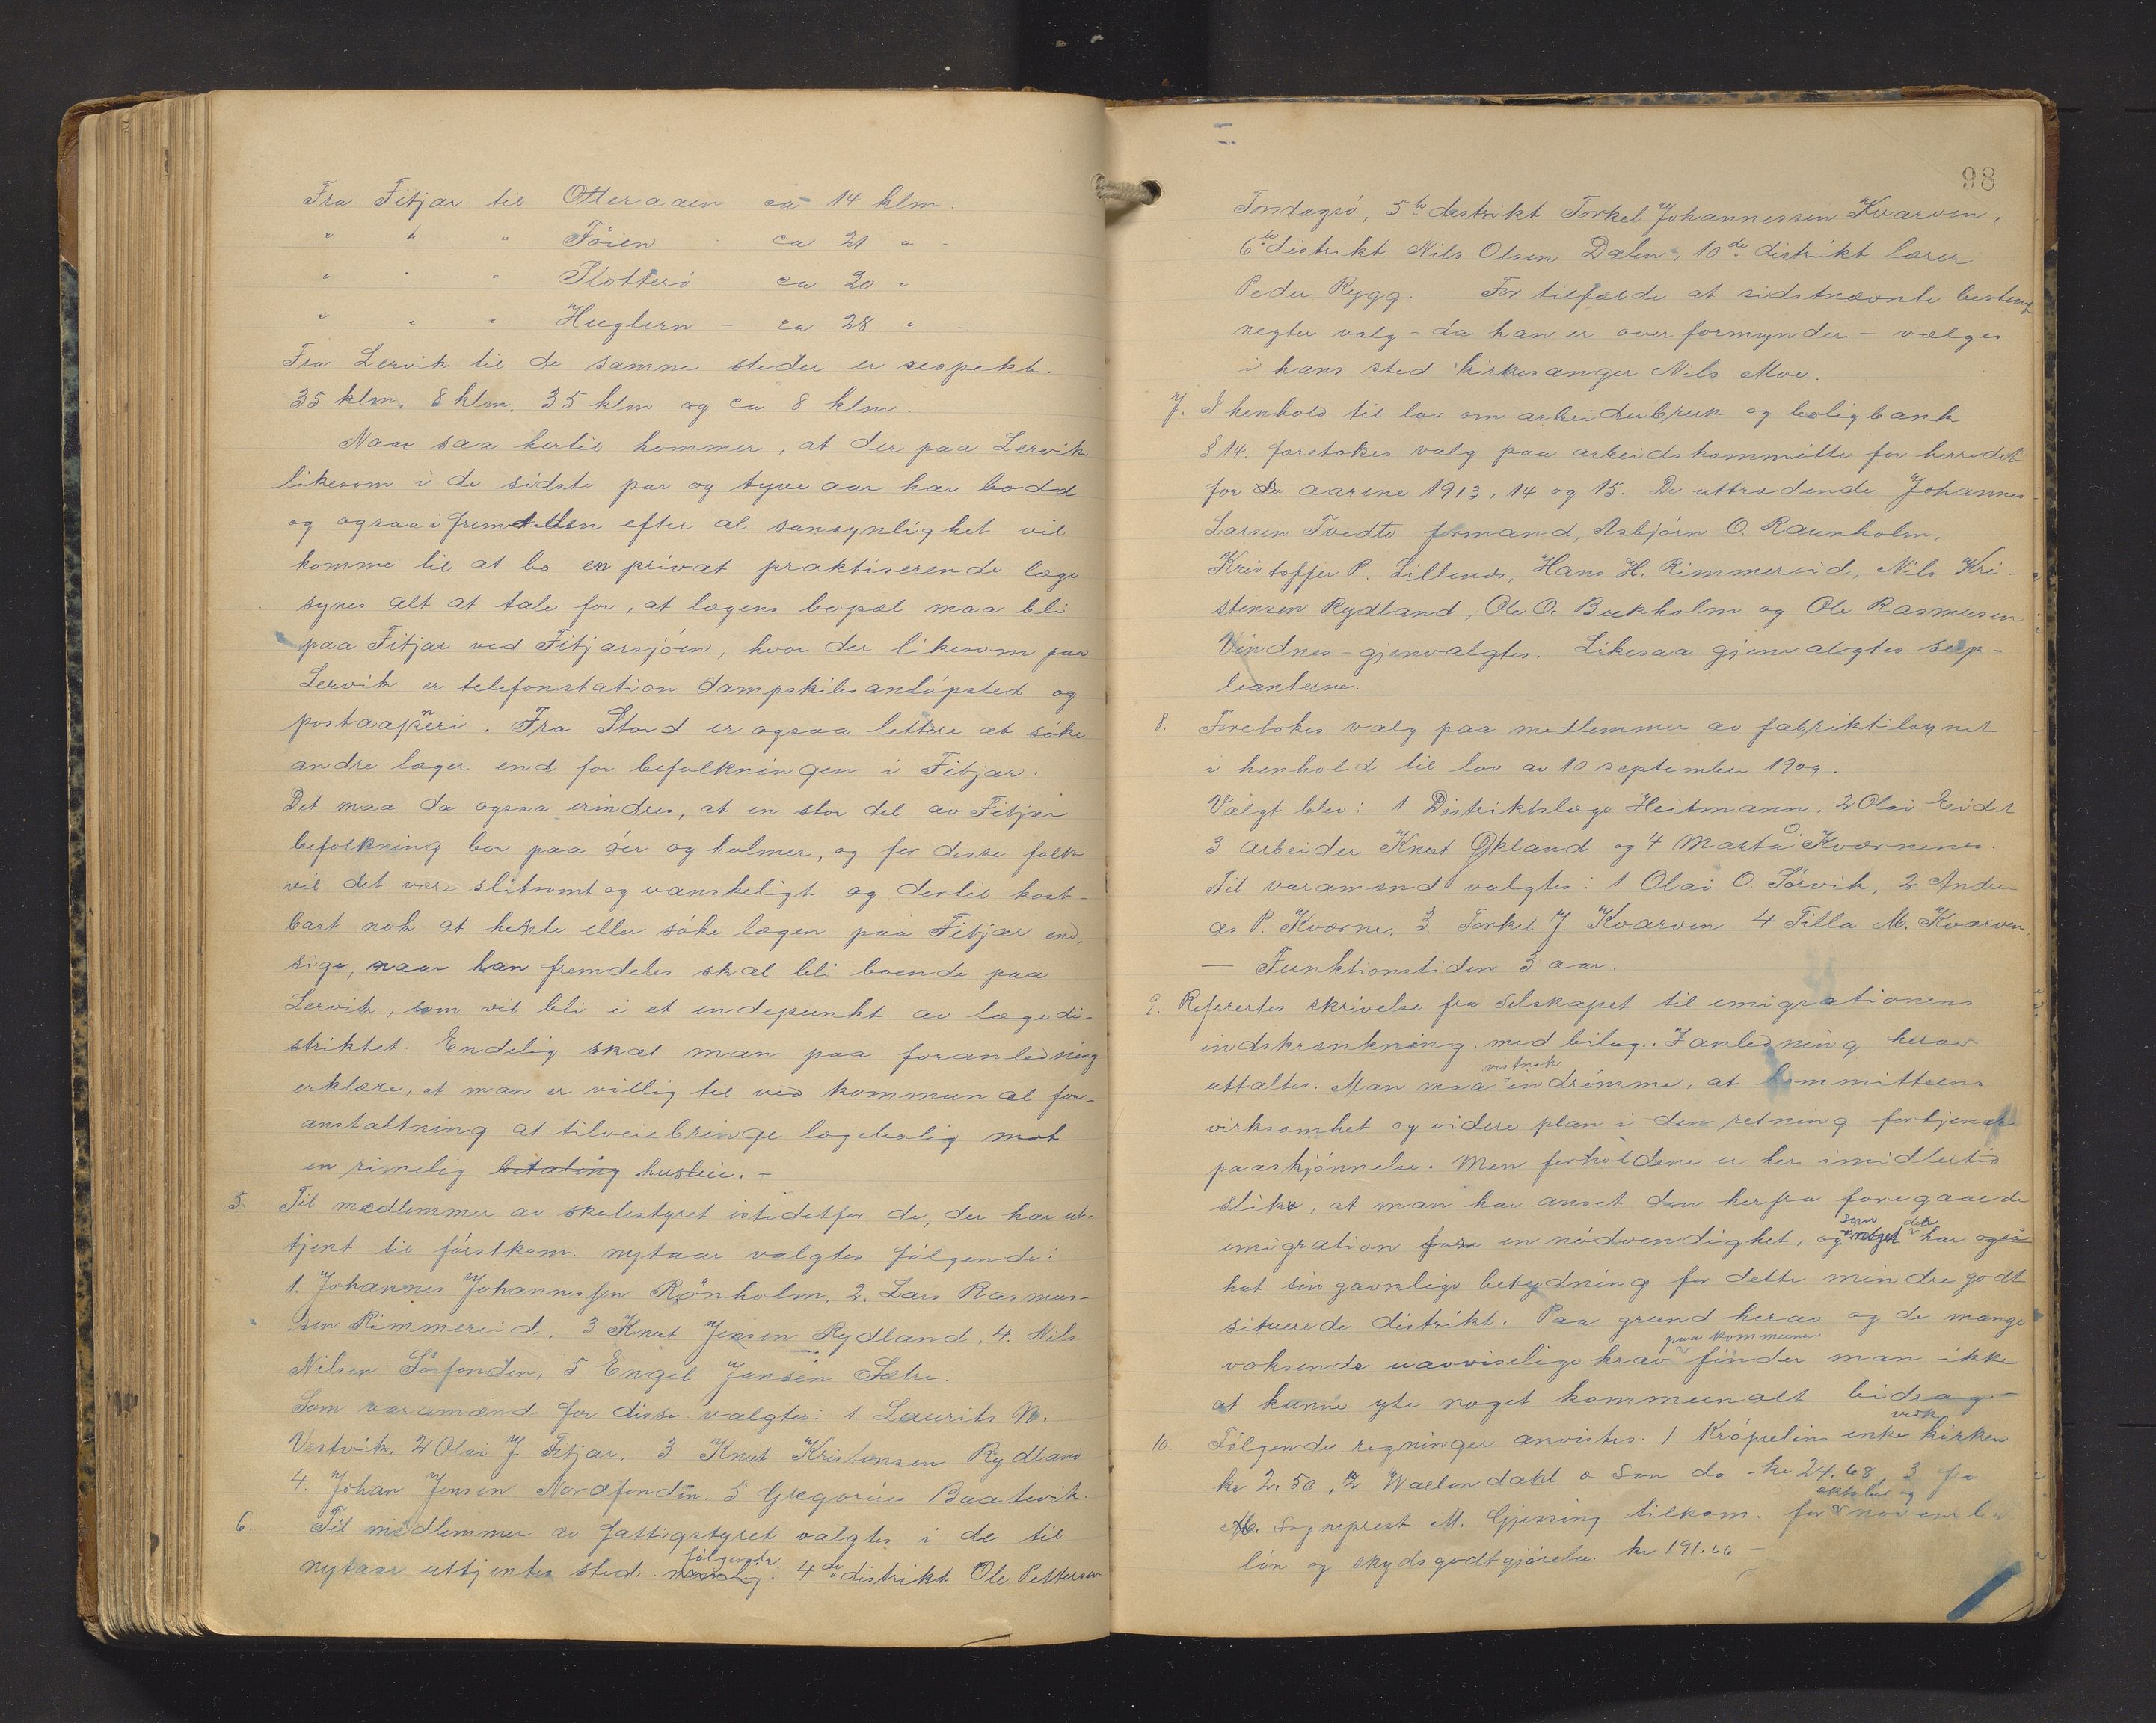 Fra Fitjar til Otteraaen ca 14 klm.
" " " Föien ca 21 " -
" " " Slotterö ca 20 "
" " " Huglern - ca 28 " -
Fra Lervik til de samme steder er respekt.
35 klm. 8 klm. 35 klm og ca 8 klm.
Naar saa hertil kommer, at der paa Lervik
likesom i de sidste par og tyve aar har bodd
og ogsaa i fremtiden efter al sansynlighet vil
komme til at bo en privat praktiserende læge
synes alt at tale for, at lægens bopæl maa bli
paa Fitjar ved Fitjarsjöen, hvor der likesom paa
Lervik er telefonstation dampskibsanlöpsted og
postaapneri. Fra Stord er ogsaa lettere at söke
andre læger end for befolkningen i Fitjar.
Det maa da ogsaa erindres, at en stor del av Fitjar
befolkning bor paa öer og holmer, og for disse folk
vil det være slitsomt og vanskeligt og dertil kost-
bart nok at hente eller söke lægen paa Fitjar end-
sige, naar han fremdeles skal bli boende paa
Lervik, som vil bli i et endepunkt av lægedi-
striktet. Endelig skal man paa foranledning
erklære, at man er villig til ved kommunal for-
anstaltning at tilveiebringe lægebolig mot
en rimelig betaling husleie. -
5. Til medlemmer av skolestyret istedetfor de, der har ut-
tjent til förstkom. nytaar valgtes fölgende:
1. Johannes Johannessen Rönholm, 2. Lars Rasmus-
sen Rimmereid, 3 Knut Jensen Rydland, 4. Nils
Nilsen Sörfonden, 5 Engel Jansen Sætre.
Som varamænd for disse valgtes: 1. Laurits N.
Vestvik, 2 Olai J. Fitjar, 3 Knut Kristensen Rydland
4. Johan Jensen Nordfonden. 5 Gregorius Baatevik.
6. Til medlemmer av fattigstyret valgtes i de til
nytaar uttjentes sted fölgende: 4de distrikt Ole Pettersen
98
Tendagsö, 5te distrikt Torkel Johannessen Kvarven,
6te distrikt Nils Olsen Dalen, 10de distrikt lærer
Peder Rygg. For tilfælde at sidstnævnte bestemt
negter valg - da han er overformynder - vælges
i hans sted kirkesanger Nils Moe.
7. I henhold til lov om arbeiderbruk og boligbank
§ 14. foretokes valg paa arbeidskommitte for herredet
for de aarene 1913, 14 og 15. De uttrædende Johannes
Larsen Tvedte formand, Asbjörn O. Raunholm,
Kristoffer P. Lillenes, Hans H. Rimmereid, Nils Kri-
stensen Rydland, Ole O. Bukholm og Ole Rasmussen
Vindnes - gjenvalgtes. Likesaa gjenvalgtes sup-
leanterne.
8. Foretokes valg paa medlemmer av fabriktilsynet
i henhold til lov av 10 september 1909.
Valgt blev: 1 Distriktslæge Heitmann. 2 Olai Eide
3 arbeider Knut Økland og 4 Marta O. Kværnenes.
Til varamænd valgtes: 1. Olai O. Sörvik, 2 Andre-
as P. Kværne. 3. Torkel J. Kvarven 4 Tilla M. Kvarven
- Funktionstiden 3 aar.
9. Refererertes skrivelse fra Selskapet til emigrationens
indskrænkning med bilag. I anledning herav
uttaltes. Man maa vistnok indrömme, at kommitteens
virksomhet og videre plan i den retning fortjener
paaskjönnelse. Men forholdene er her imidlertid
slike, at man har anset den herfra foregaaede
emigration for en nödvendighet, og som noget der har også
hat sin gavnlige betydning for dette mindre godt
situerede distrikt. Paa grund herav og de mange
voksende uavviselige krav paa kommunen finder man ikke
at kunne yte noget kommunalt bidrag -
10. Fölgende regninger anvistes. 1 Kröpelins enke vedk kirken
kr 2.50, 2 Wallendahl & Søn do - kr 24.68, 3 fra
sogneprest M. Gjessing tilkom. for oktober og november
lön og skydsgodtgjörelse. kr 191.66 -